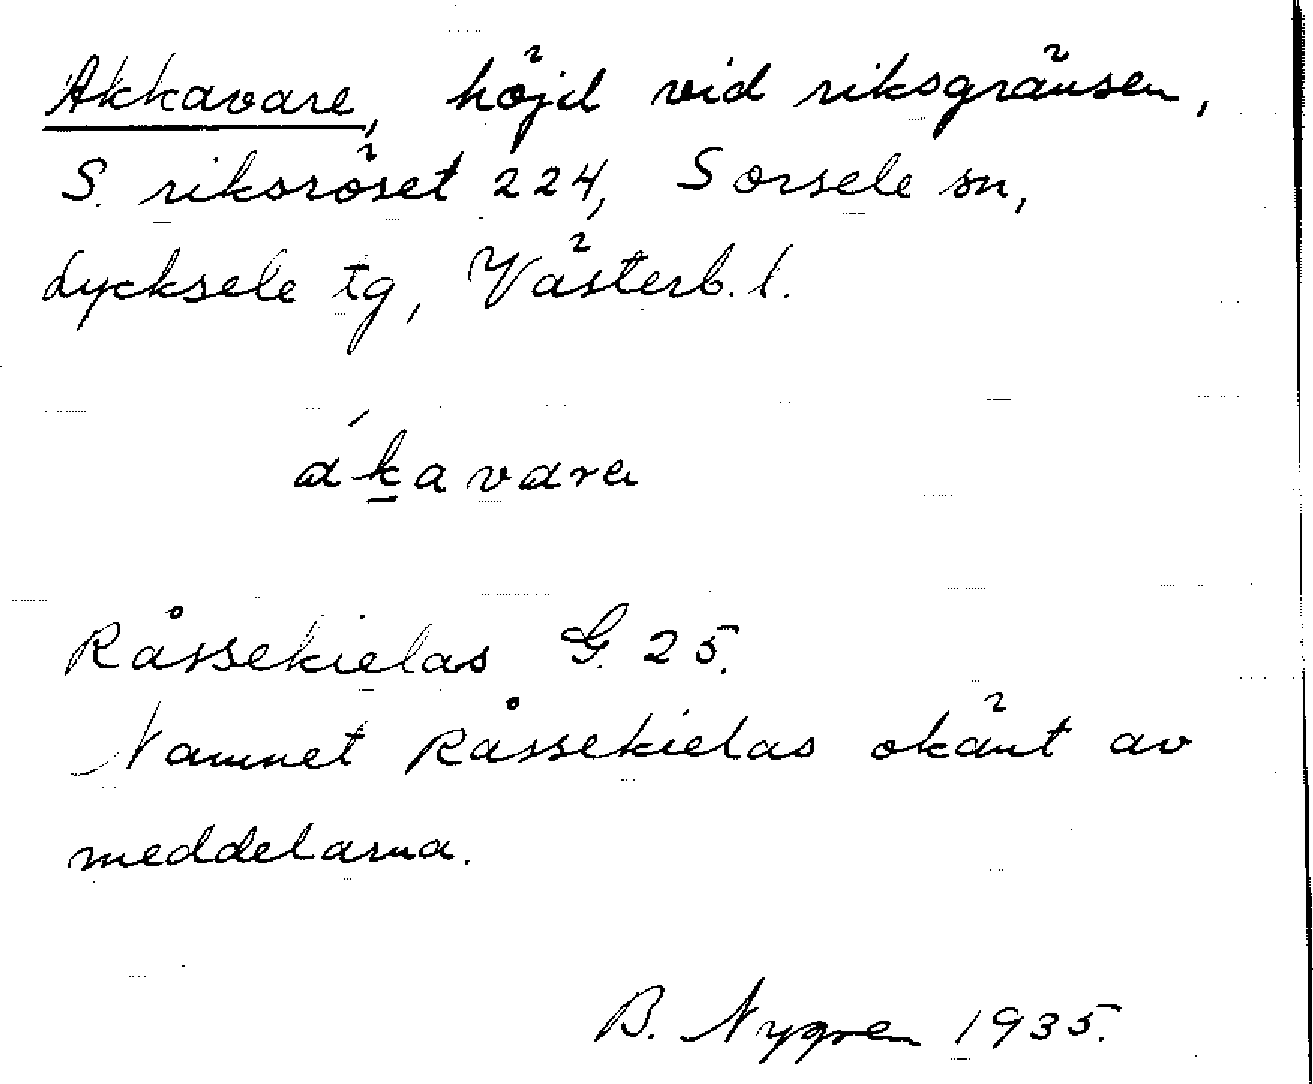 Akkavare, höjd vid riksgränsen,
S. riksröset 224, Sorsele sn,
Lycksele tg, Västerb. l.
ák̲avara
Råssekielas G. 25.
Namnet Råssekielas okänt av
meddelarna.
B. Nygren 1935.